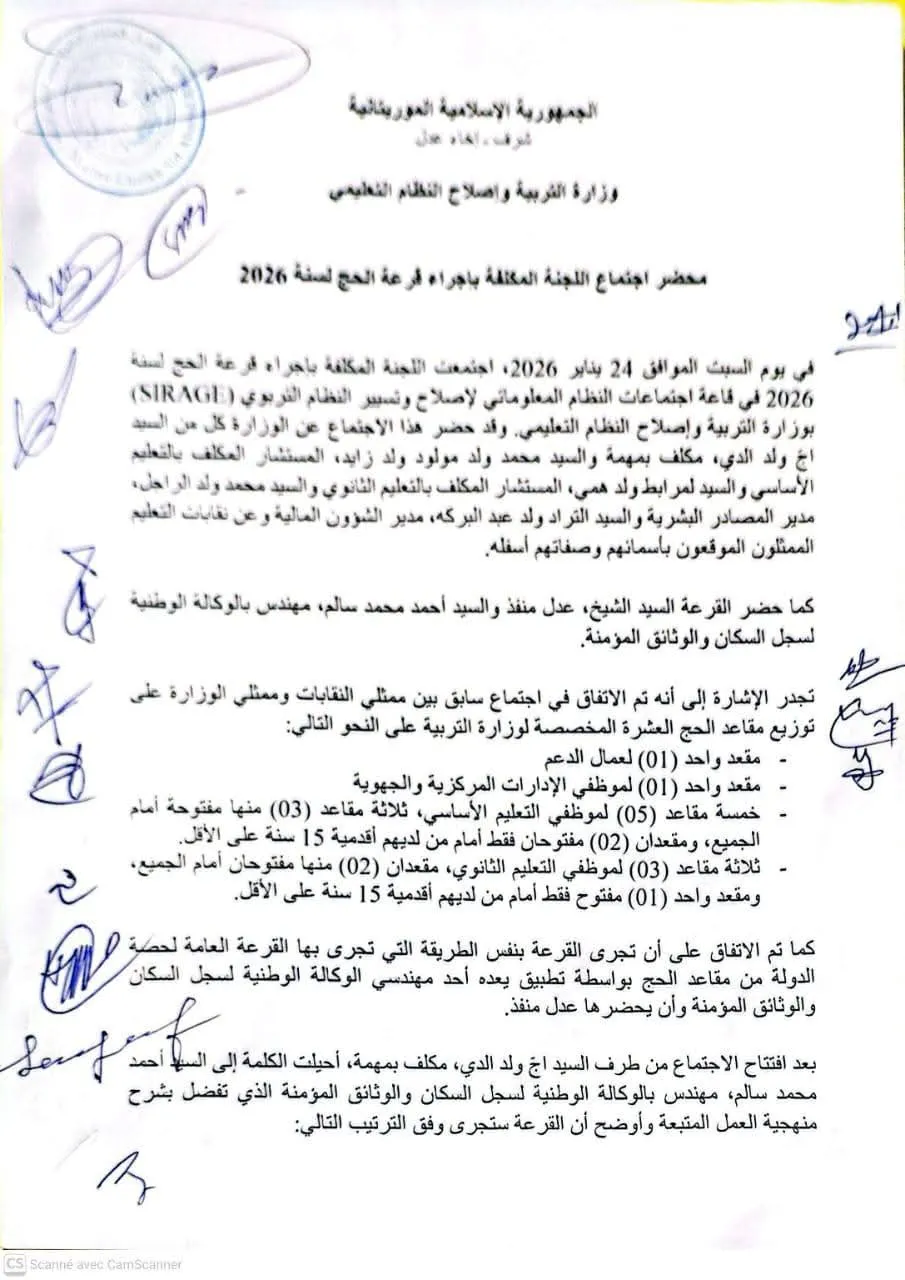 الجمهورية الإسلامية الموريتانية
شرف - إخاء عدل
وزارة التربية وإصلاح النظام التعليمي
محضر اجتماع اللجنة المكلفة بإجراء قرعة الحج لسنة 2026
في يوم السبت الموافق 24 يناير 2026، اجتمعت اللجنة المكلفة بإجراء قرعة الحج لسنة
2026 في قاعة اجتماعات النظام المعلوماتي لإصلاح وتسيير النظام التربوي (SIRAGE)
بوزارة التربية وإصلاح النظام التعليمي. وقد حضر هذا الاجتماع عن الوزارة كل من السيد
اج ولد الدي، مكلف بمهمة والسيد محمد ولد مولود ولد زايد، المستشار المكلف بالتعليم
الأساسي والسيد لمرابط ولد همي، المستشار المكلف بالتعليم الثانوي والسيد محمد ولد الراجل،
مدير المصادر البشرية والسيد التراد ولد عبد البركه، مدير الشؤون المالية وعن نقابات التعليم
الممثلون الموقعون بأسمائهم وصفاتهم أسفله.
كما حضر القرعة السيد الشيخ، عدل منفذ والسيد أحمد محمد سالم، مهندس بالوكالة الوطنية
لسجل السكان والوثائق المؤمنة.
تجدر الإشارة إلى أنه تم الاتفاق في اجتماع سابق بين ممثلي النقابات وممثلي الوزارة على
توزيع مقاعد الحج العشرة المخصصة لوزارة التربية على النحو التالي:
- مقعد واحد (01) لعمال الدعم
- مقعد واحد (01) لموظفي الإدارات المركزية والجهوية
- خمسة مقاعد (05) لموظفي التعليم الأساسي، ثلاثة مقاعد (03) منها مفتوحة أمام
الجميع، ومقعدان (02) مفتوحان فقط أمام من لديهم أقدمية 15 سنة على الأقل.
- ثلاثة مقاعد (03) لموظفي التعليم الثانوي، مقعدان (02) منها مفتوحان أمام الجميع،
ومقعد واحد (01) مفتوح فقط أمام من لديهم أقدمية 15 سنة على الأقل.
كما تم الاتفاق على أن تجرى القرعة بنفس الطريقة التي تجرى بها القرعة العامة لحصة
الدولة من مقاعد الحج بواسطة تطبيق يعده أحد مهندسي الوكالة الوطنية لسجل السكان
والوثائق المؤمنة وأن يحضرها عدل منفذ.
بعد افتتاح الاجتماع من طرف السيد اج ولد الدي، مكلف بمهمة، أحيلت الكلمة إلى السيد أحمد
محمد سالم، مهندس بالوكالة الوطنية لسجل السكان والوثائق المؤمنة الذي تفضل بشرح
منهجية العمل المتبعة وأوضح أن القرعة ستجرى وفق الترتيب التالي:
CS Scanné avec CamScanner